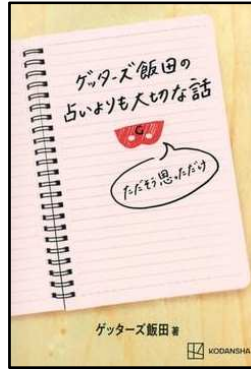 ゲッターズ飯田の
占いよりも大切な話
G
ただそう思っただけ
ゲッターズ飯田 著
KODANSHA